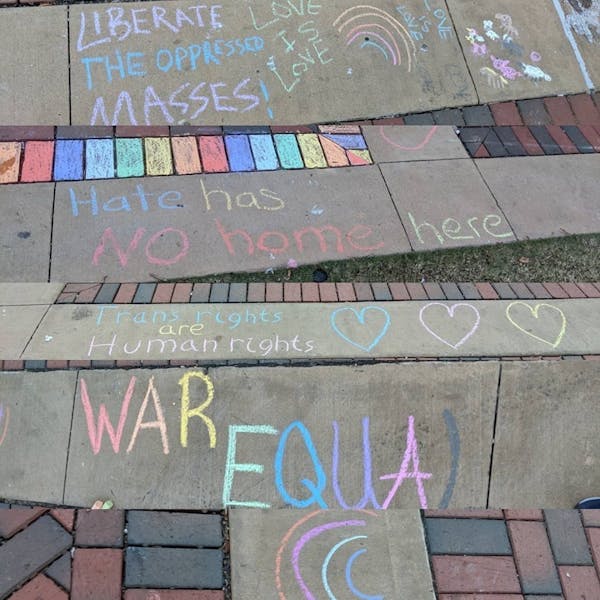 LIBERATE
THE OPPRESSED
MASSES!
LOVE
IS
LOVE
LOVE
IS
LOVE
Hate has
NO home here
Trans rights
are
Human rights
WAR
EQUA